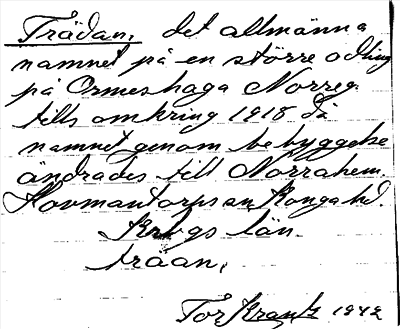 Trädan, det allmänna
namnet på en större odling
på Ormeshaga Norreg.
tills omkring 1918 då
namnet genom bebyggelse
ändrades till Norrahem.
Hovmantorps sn Konga hd.
Krbgs län.
träan,
Tor Krantz 1942